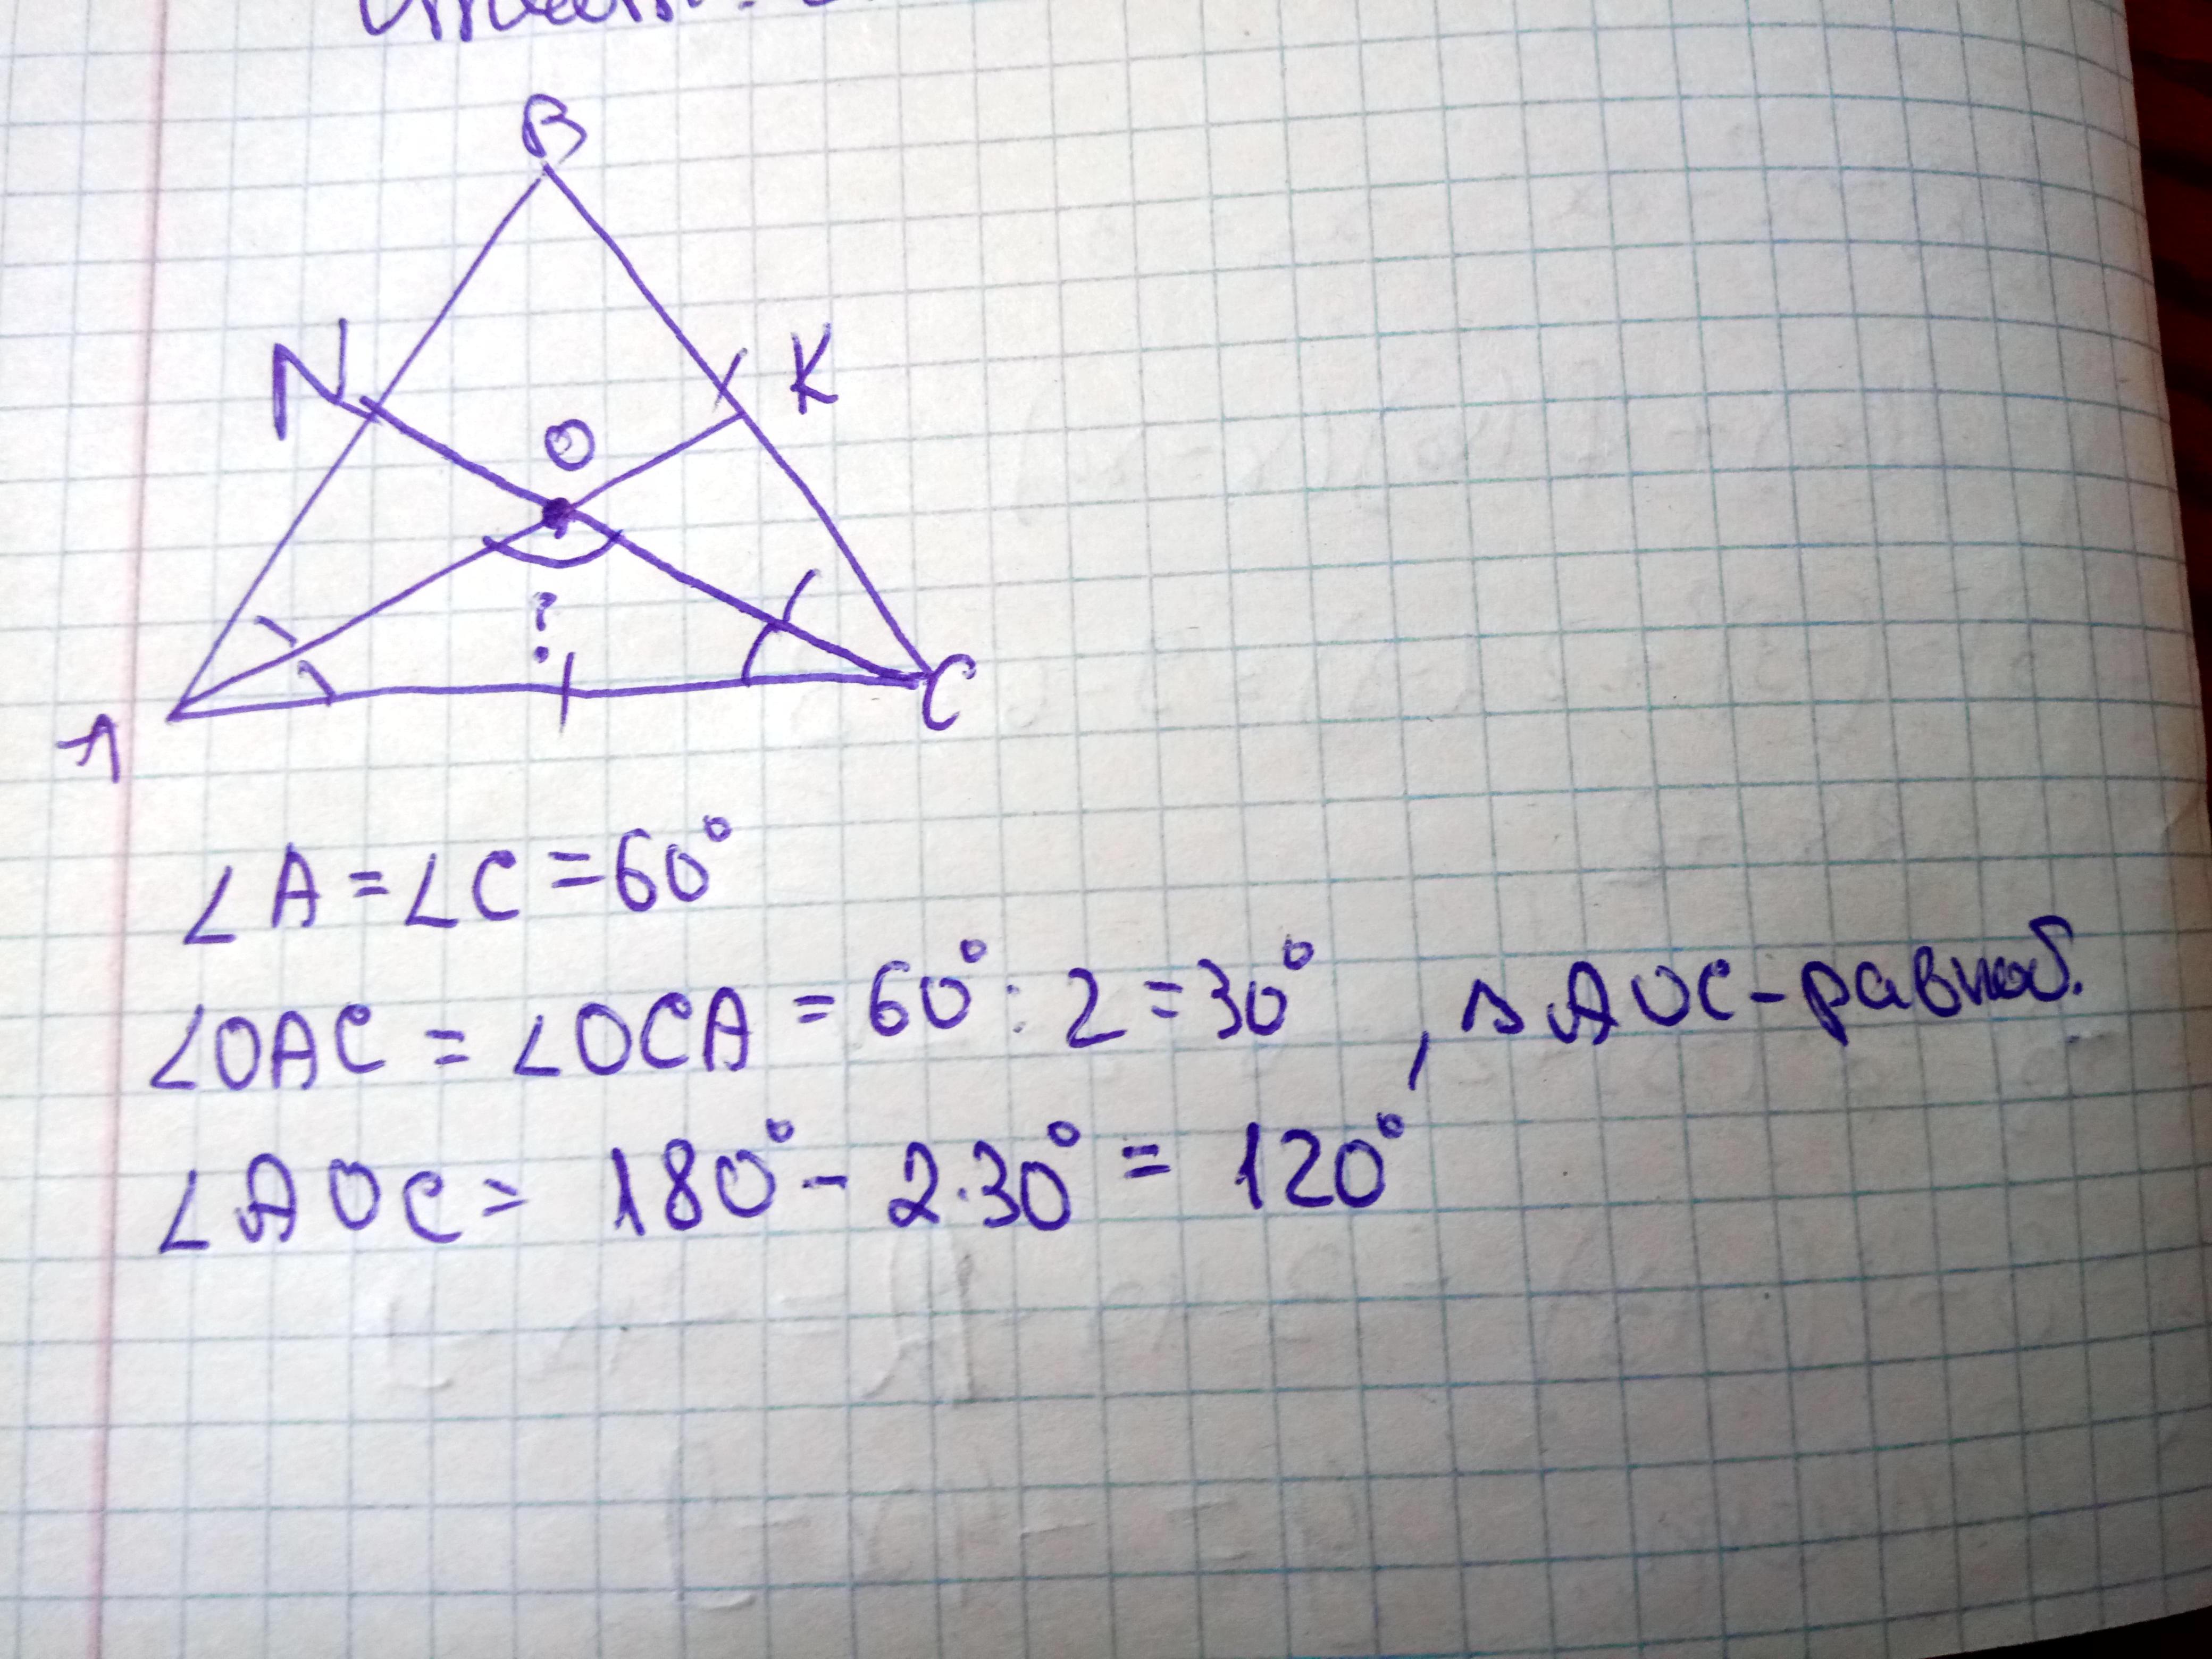 B
N
K
O
?
A
C
∠A = ∠C = 60°
∠OAC = ∠OCA = 60° : 2 = 30° , △AOC - равноб.
∠AOC = 180° - 2·30° = 120°